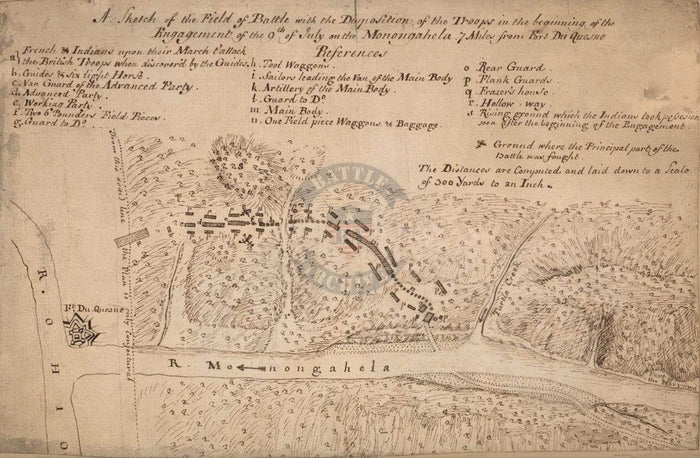 A Sketch of the Field of Battle with the Disposition of the Troops in the beginning of the
Engagement of the 9th of July on the Monongahela 7 Miles from Fort Du Quesne
References
a French & Indians upon their March t'attack
the British Troops when discover'd by the Guides.
b. Guides & six light Horse.
c. Van Guard of the Advanced Party.
d. Advanced Party.
e. Working Party.
f. Two 6 Pounders Field Pieces.
g. Guard to Do.
h. Tool Waggons.
i. Sailors leading the Van of the Main Body
k. Artillery of the Main Body.
l. Guard to Do
m. Main Body.
n. One Field piece Waggons & Baggage.
o Rear Guard.
p. Flank Guards.
q. Frazer's house.
r. Hollow-way
s. Rising ground which the Indians took possession
soon after the beginning of the Engagement
Ground where the Principal party of the
Battle was fought.
The Distances are Computed and laid down to a Scale
of 300 Yards to an Inch.
From this dotted line
the Plan is only conjectural
Ft. Du Quesne
R. OHIO
R. Monongahela
Turtle Creek
BATTLE